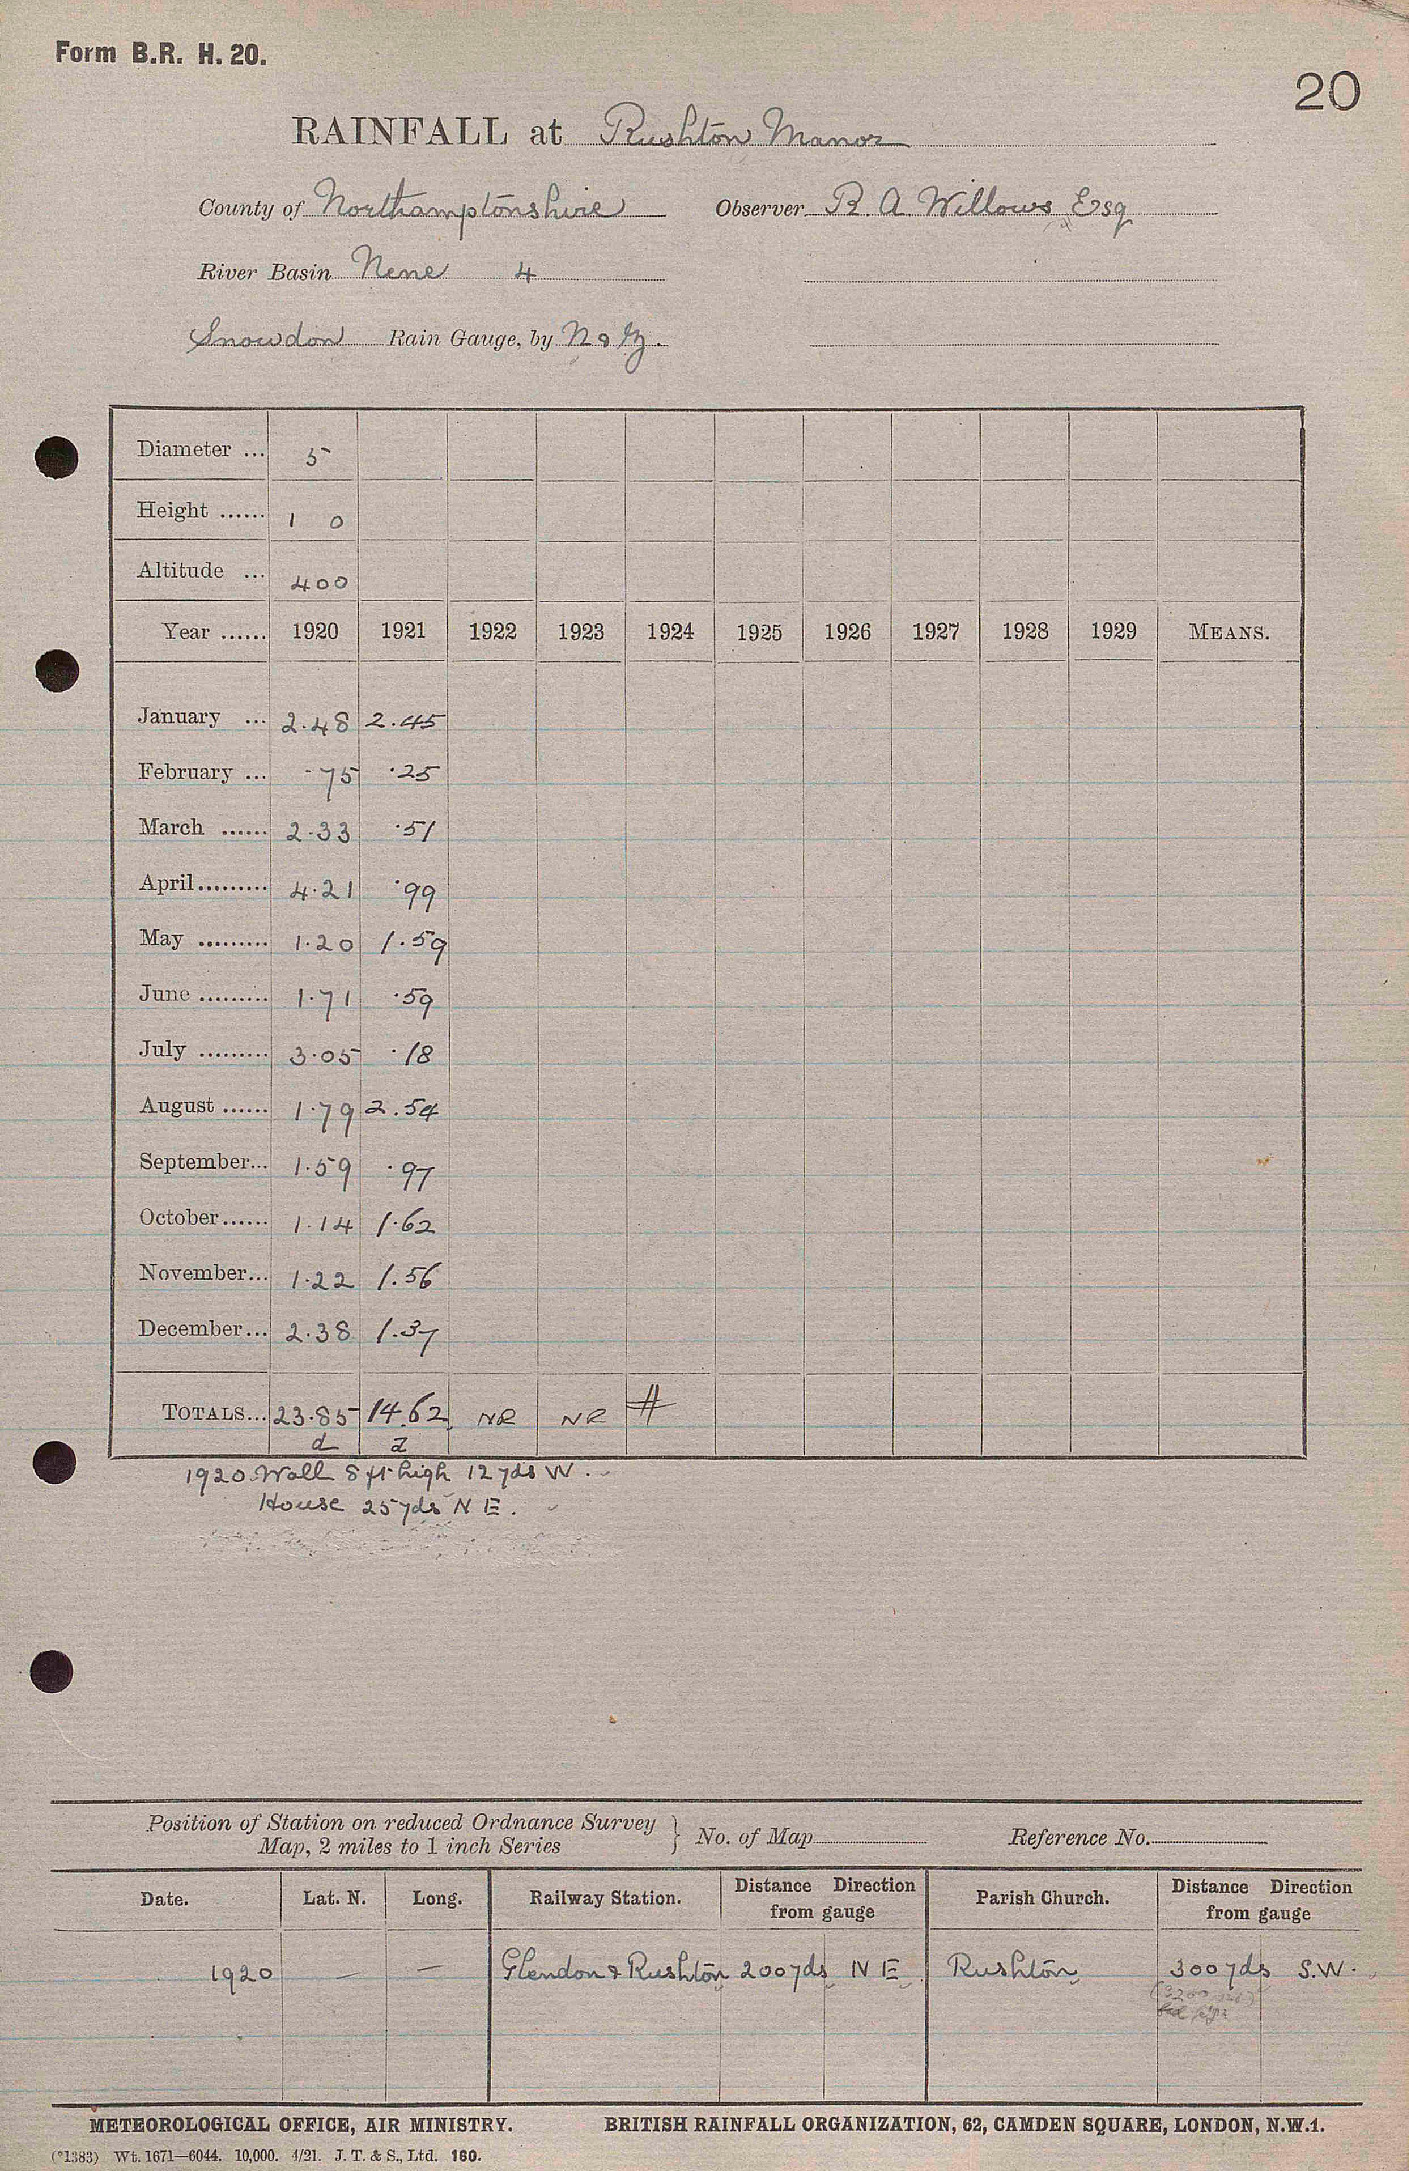 Form B.R. H. 20.
20
RAINFALL at Rushton Manor
County of Northamptonshire Observer R. A. Willows Esq
River Basin Nene 4
Snowdon Rain Gauge, by N & Z.
Diameter ... 5
Height ...... 1 0
Altitude ... 400
Year ...... 1920 1921 1922 1923 1924 1925 1926 1927 1928 1929 MEANS.
January ... 2.48 2.45
February ... .75 .25
March ...... 2.33 .51
April......... 4.21 .99
May ......... 1.20 1.59
June ......... 1.71 .59
July ......... 3.05 .18
August ...... 1.79 2.54
September... 1.59 .97
October...... 1.14 1.62
November... 1.22 1.56
December... 2.38 1.37
TOTALS... 23.85 14.62 NR NR #
d
1920 Wall 8 ft high 12 yds W.
House 25 yds N E.
Position of Station on reduced Ordnance Survey
Map, 2 miles to 1 inch Series } No. of Map Reference No.
Date. Lat. N. Long. Railway Station. Distance Direction from gauge Parish Church. Distance Direction from gauge
1920 — — Glendon & Rushton 200 yds N E. Rushton 300 yds S.W.
METEOROLOGICAL OFFICE, AIR MINISTRY. BRITISH RAINFALL ORGANIZATION, 62, CAMDEN SQUARE, LONDON, N.W.1.
(*1383) Wt. 1671—6044. 10,000. 4/21. J. T. & S., Ltd. 160.